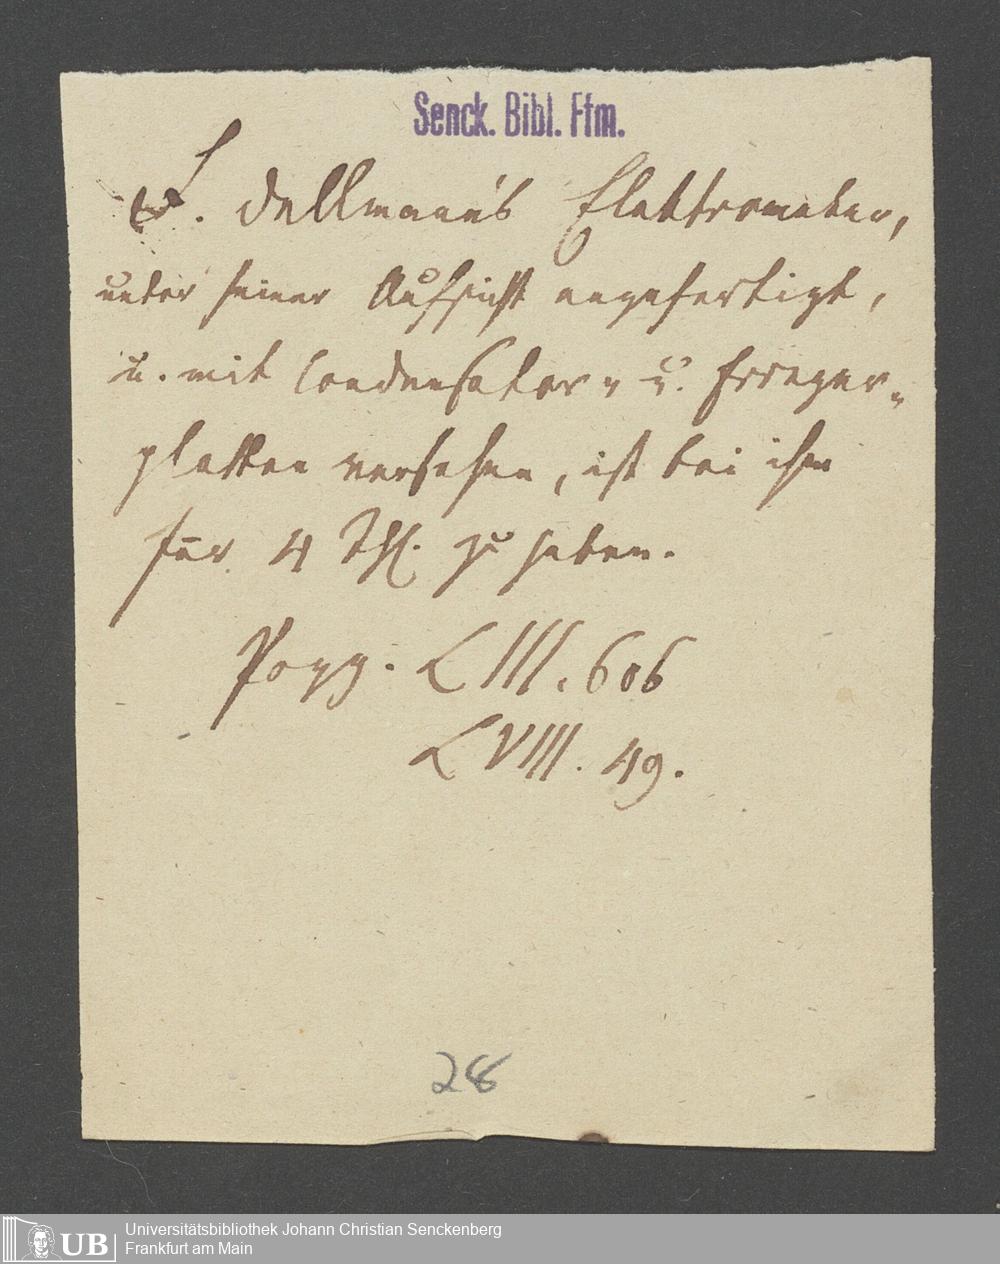 Senck. Bibl. Ffm.
F. Dellmann's Elektrometer,
unter seiner Aufsicht angefertigt,
u. mit Condensator- u. Erreger-
platten versehen, ist bei ihm
für 4 Thl. zu haben.
Pogg. LIII. 606
LVIII. 49.
28
UB
Universitätsbibliothek Johann Christian Senckenberg
Frankfurt am Main